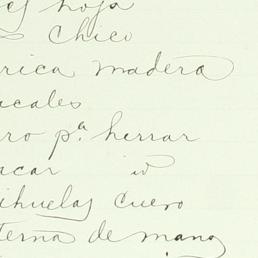 hoja
Chico
rica madera
cales
ro pª herrar
acar id
ihuelas Cuero
terna de mano